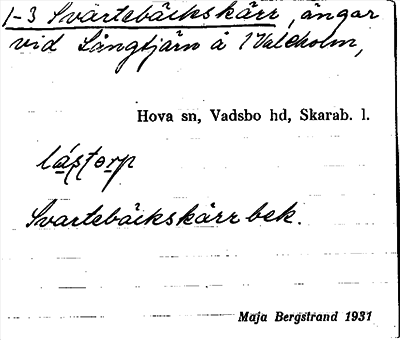 1-3 Svartebäckskärr, ängar
vid Långtjärn å 1 Valeholm,
Hova sn, Vadsbo hd, Skarab. l.
Svartebäckskärr bek.
Maja Bergstrand 1931